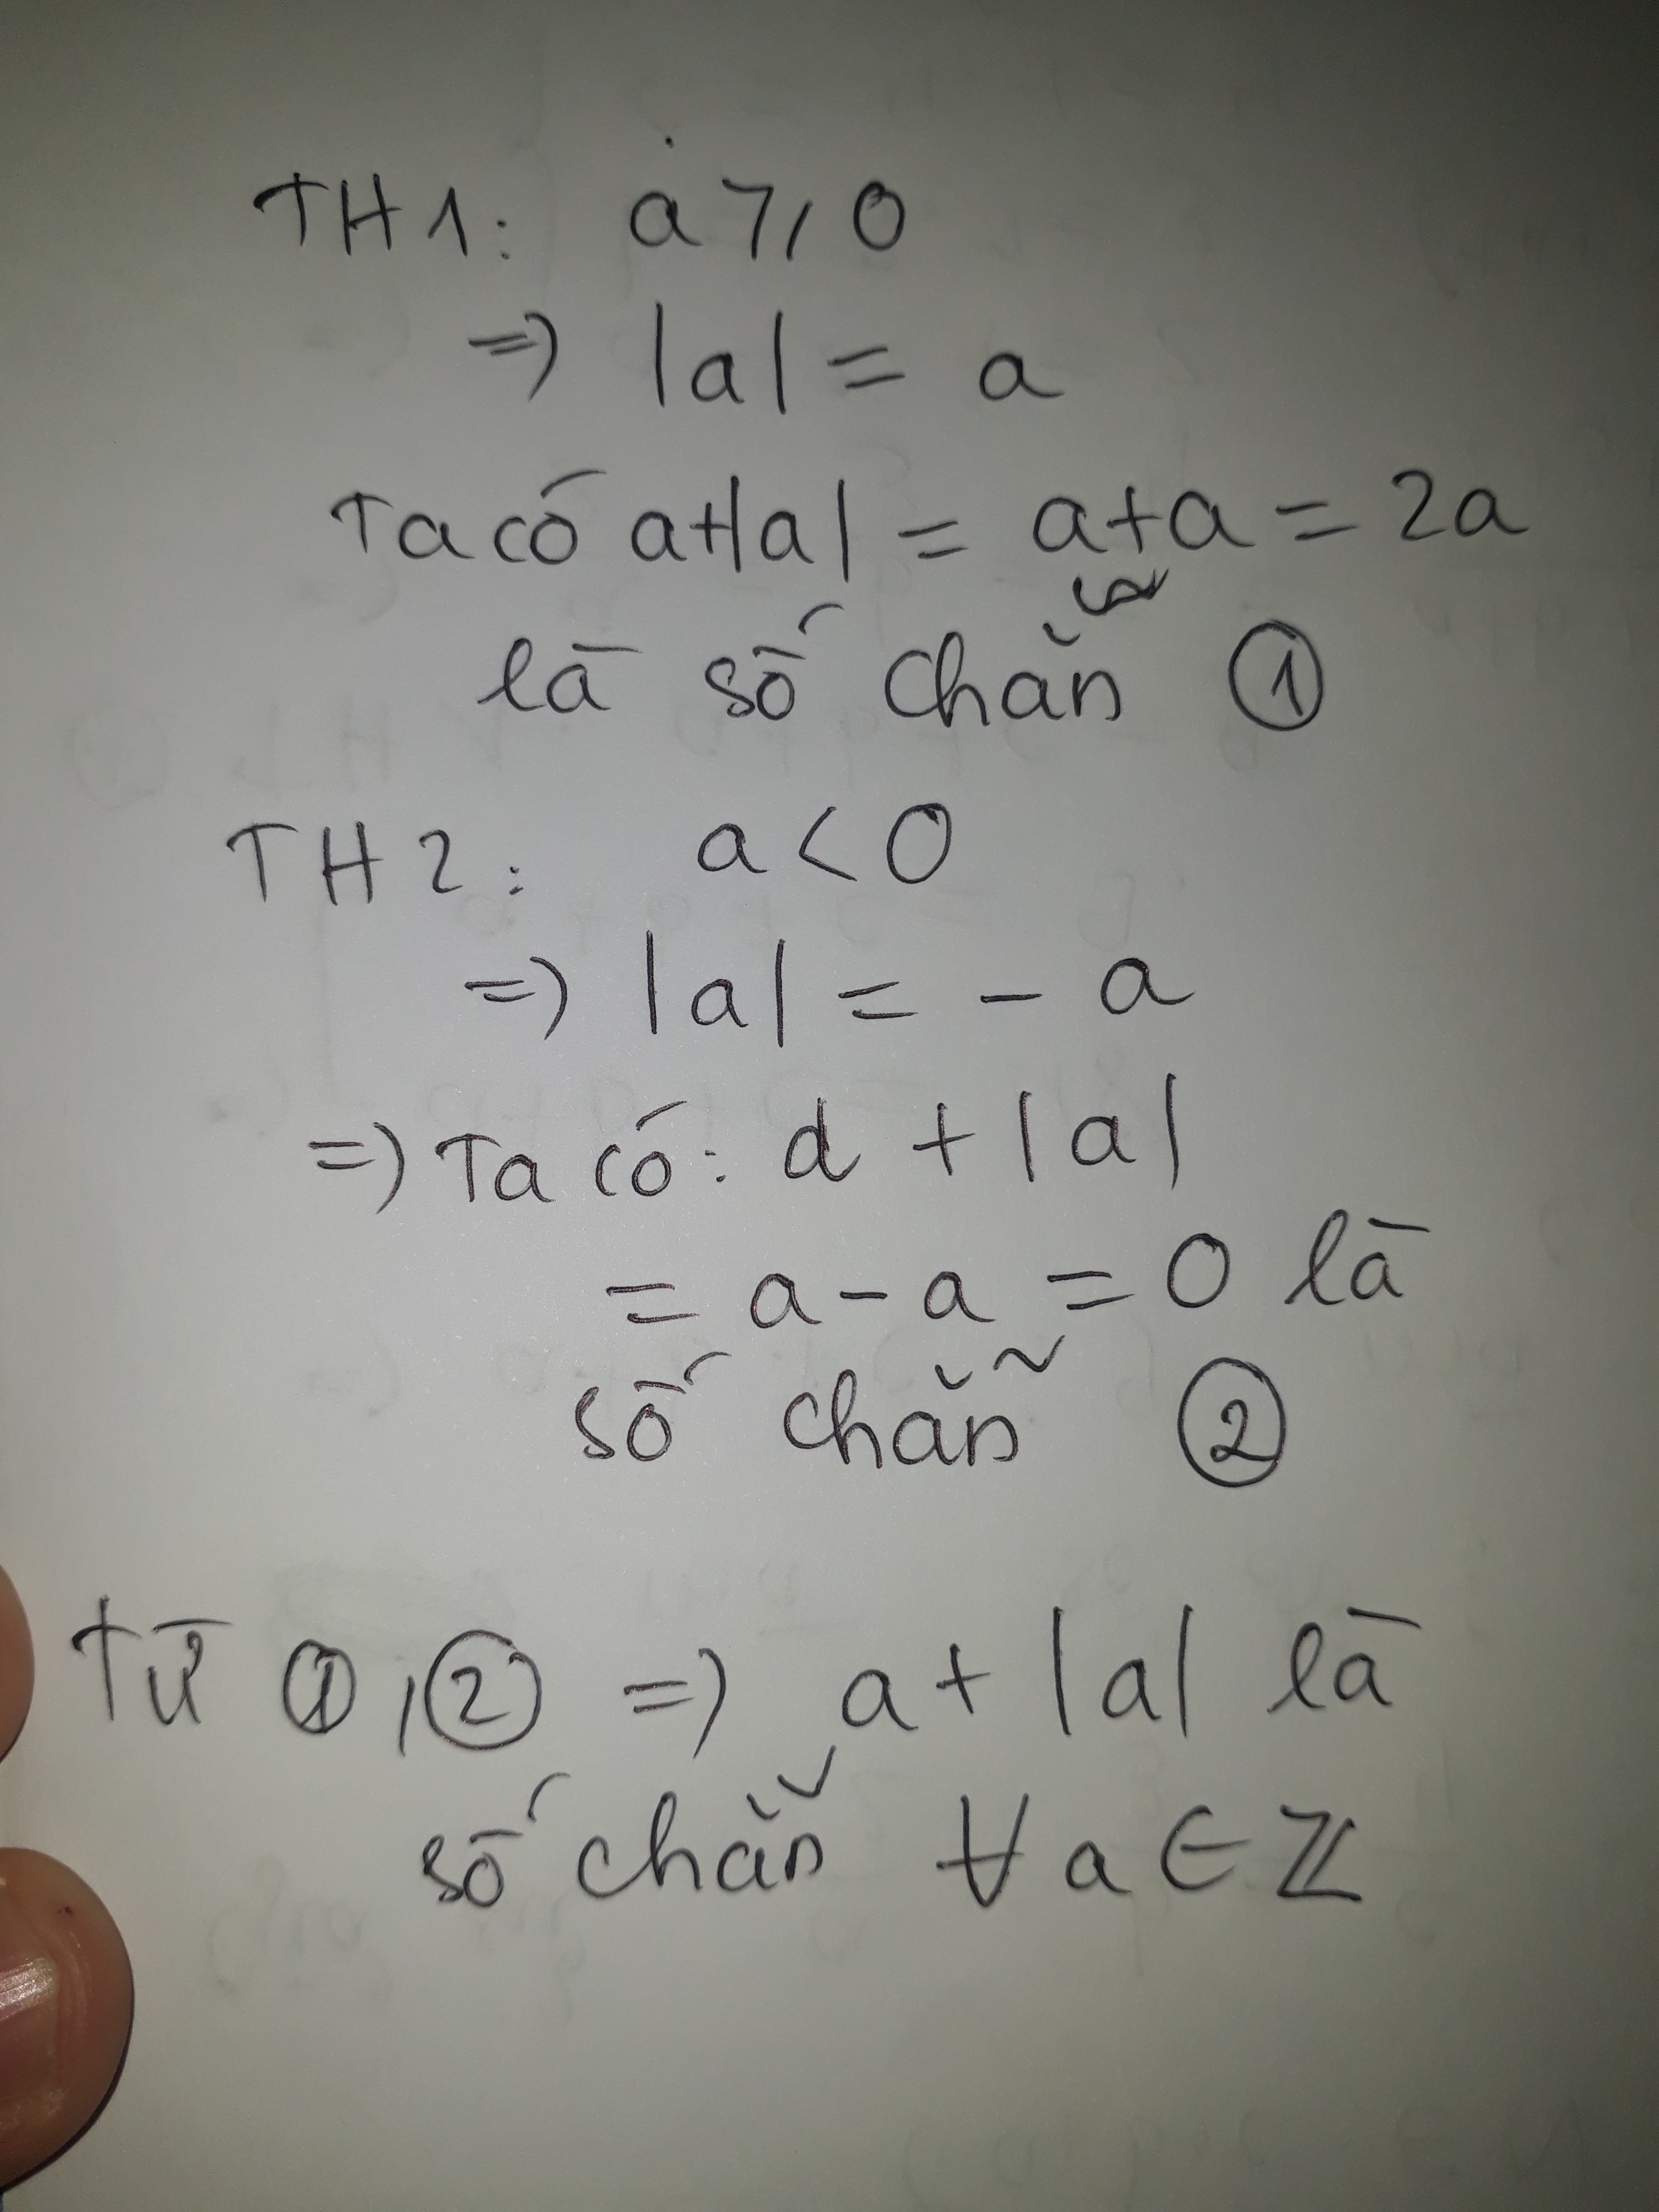 TH1: a ⩾ 0
=> |a| = a
Ta có a+|a| = a+a = 2a
là số chẵn ①
TH2: a < 0
=> |a| = - a
=> Ta có: a + |a|
= a - a = 0 là
số chẵn ②
Từ ①, ② => a + |a| là
số chẵn ∀ a ∈ ℤ